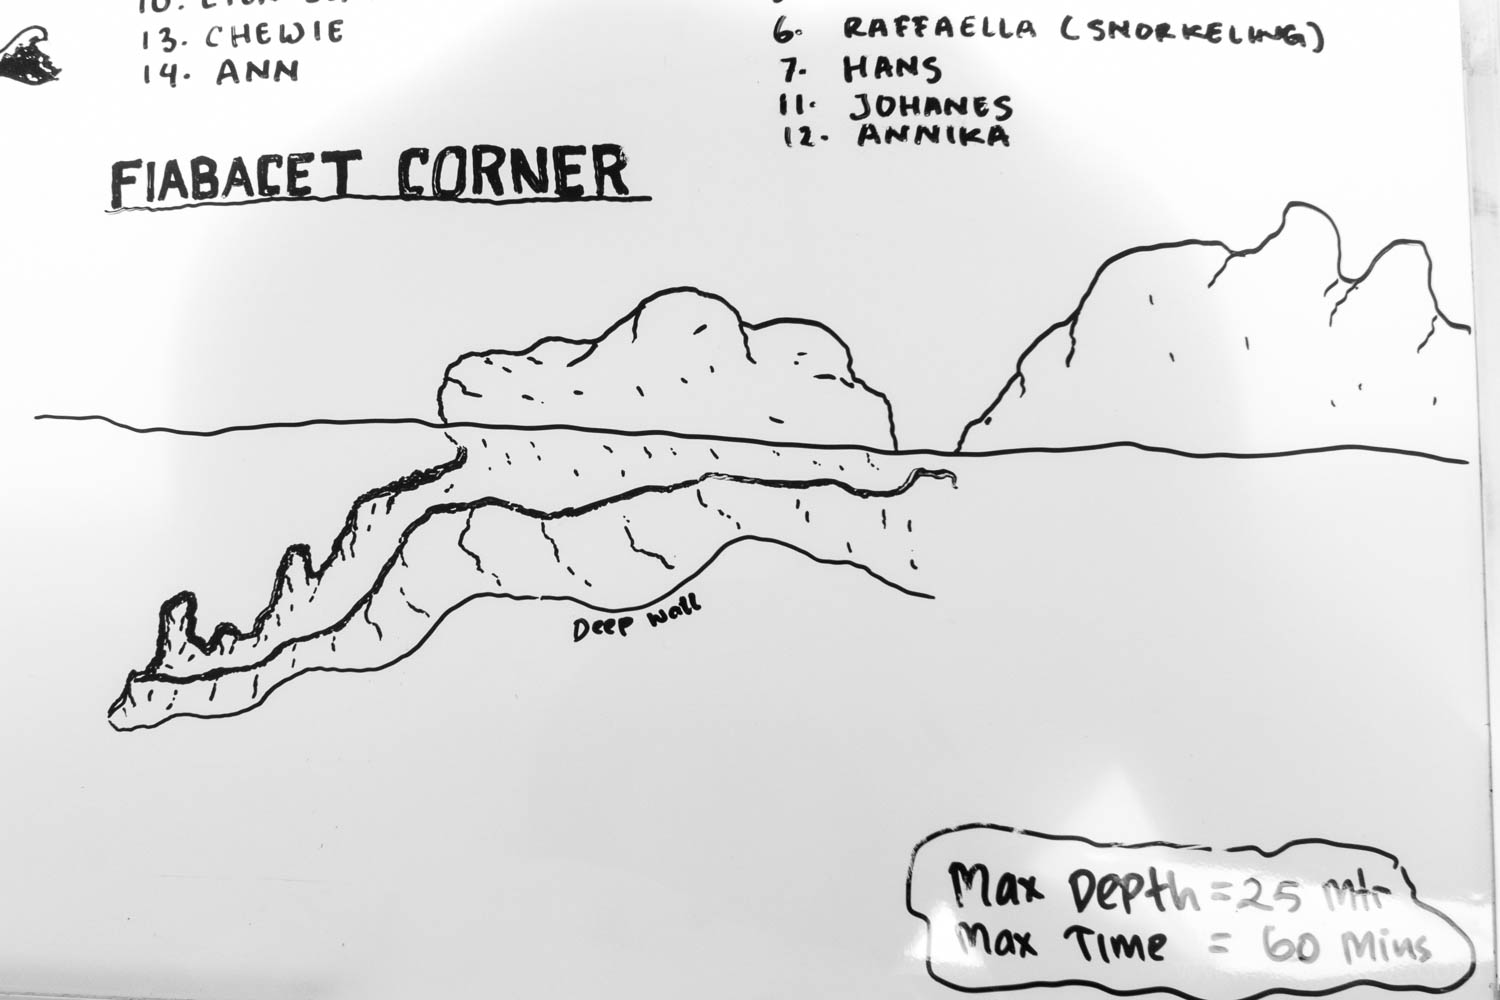 13. CHEWIE
14. ANN
6. RAFFAELLA (SNORKELING)
7. HANS
11. JOHANES
12. ANNIKA
FIABACET CORNER
Deep Wall
Max Depth = 25 Mtr
Max Time = 60 Mins